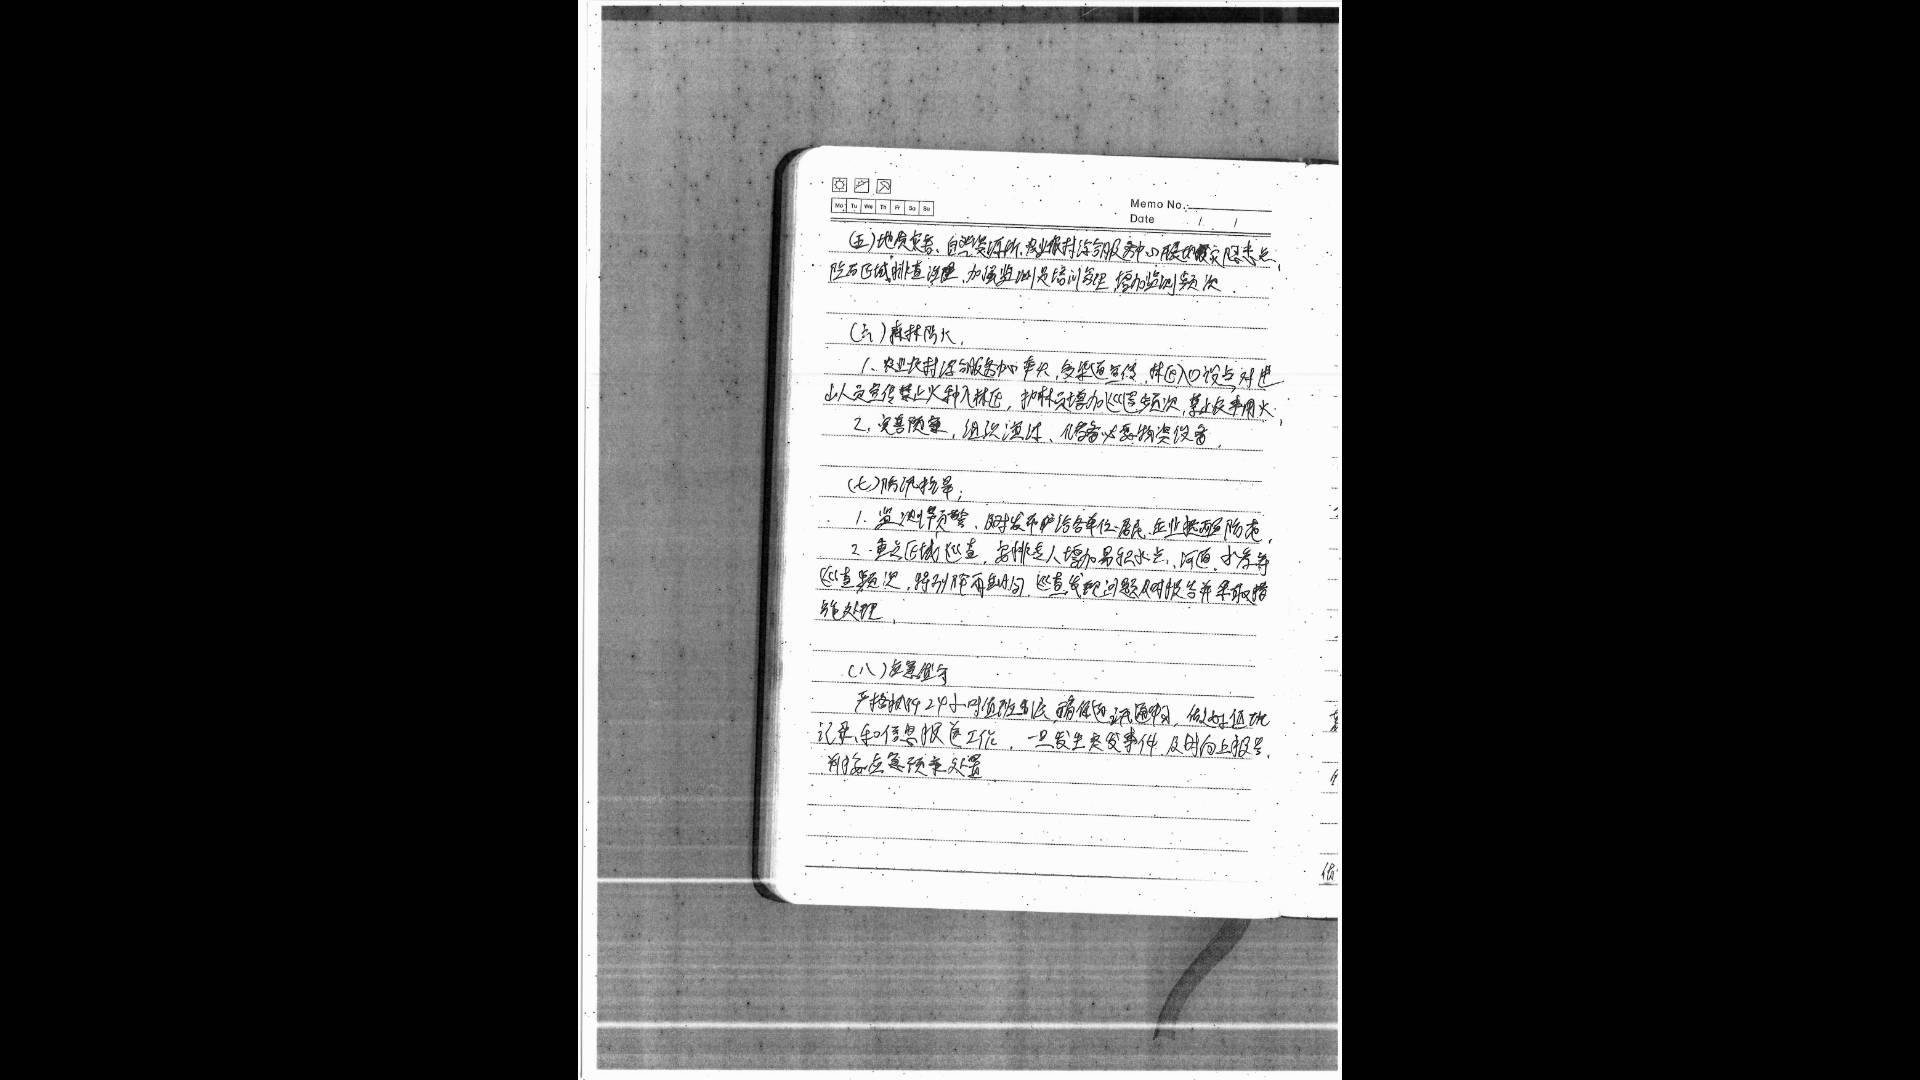 Mo Tu We Th Fr Sa Su
Memo No.
Date / /
(五)地质灾害、自然资源所、农业农村综合服务中心开展地灾隐患点、
险石区域排查治理、加强监测员培训管理、增加监测频次.
(六)森林防火.
1、农业农村综合服务中心牵头,多渠道宣传,林区入口设点,对进
山人员宣传禁止火种入林区,护林员增加巡查频次,禁止农事用火.
2、完善预案,组织演练、储备必要物资设备.
(七)防汛抗旱;
1、监测预警、及时发布 给各单位、居民、企业 防范.
2.重点区域巡查,安排专人增加易积水点、河道、水库等
巡查频次,特别降雨期间,巡查发现问题及时报告并采取措
施处理.
(八)应急值守
严格执行24小时值班制度,确保通讯通畅,做好值班
记录和信息报送工作,一旦发生突发事件,及时向上报告,
并按应急预案处置